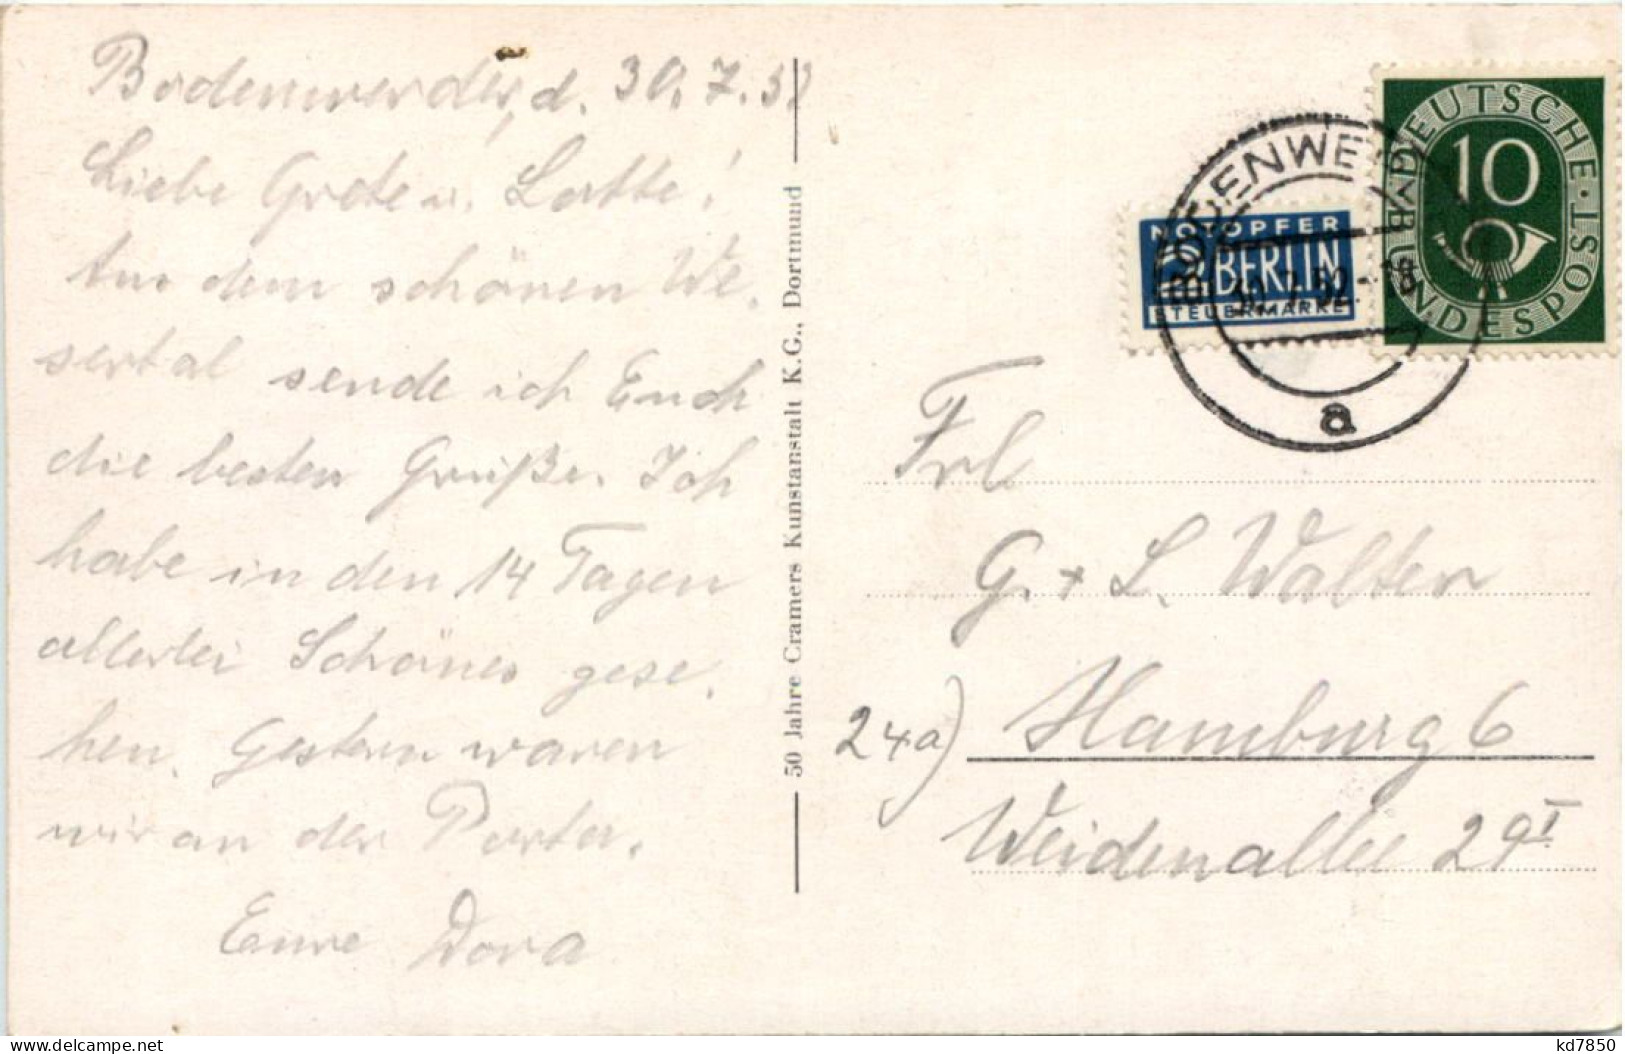 Bodenwerder, d. 30.7.52
Liebe Grete u. Lotte!
Aus dem schönen We-
sertal sende ich Euch
die besten Grüße. Ich
habe in den 14 Tagen
allerlei Schönes gese-
hen. Gestern waren
wir an der Porta.
Eure Dora
50 Jahre Cramers Kunstanstalt K.G., Dortmund
NOTOPFER
2 BERLIN
STEUERMARKE
DEUTSCHE BUNDESPOST
10
BODENWERDER
30.7.52.-18
a
Frl
G. + L. Walter
24a) Hamburg 6
Weidenallee 29 I
kd7850